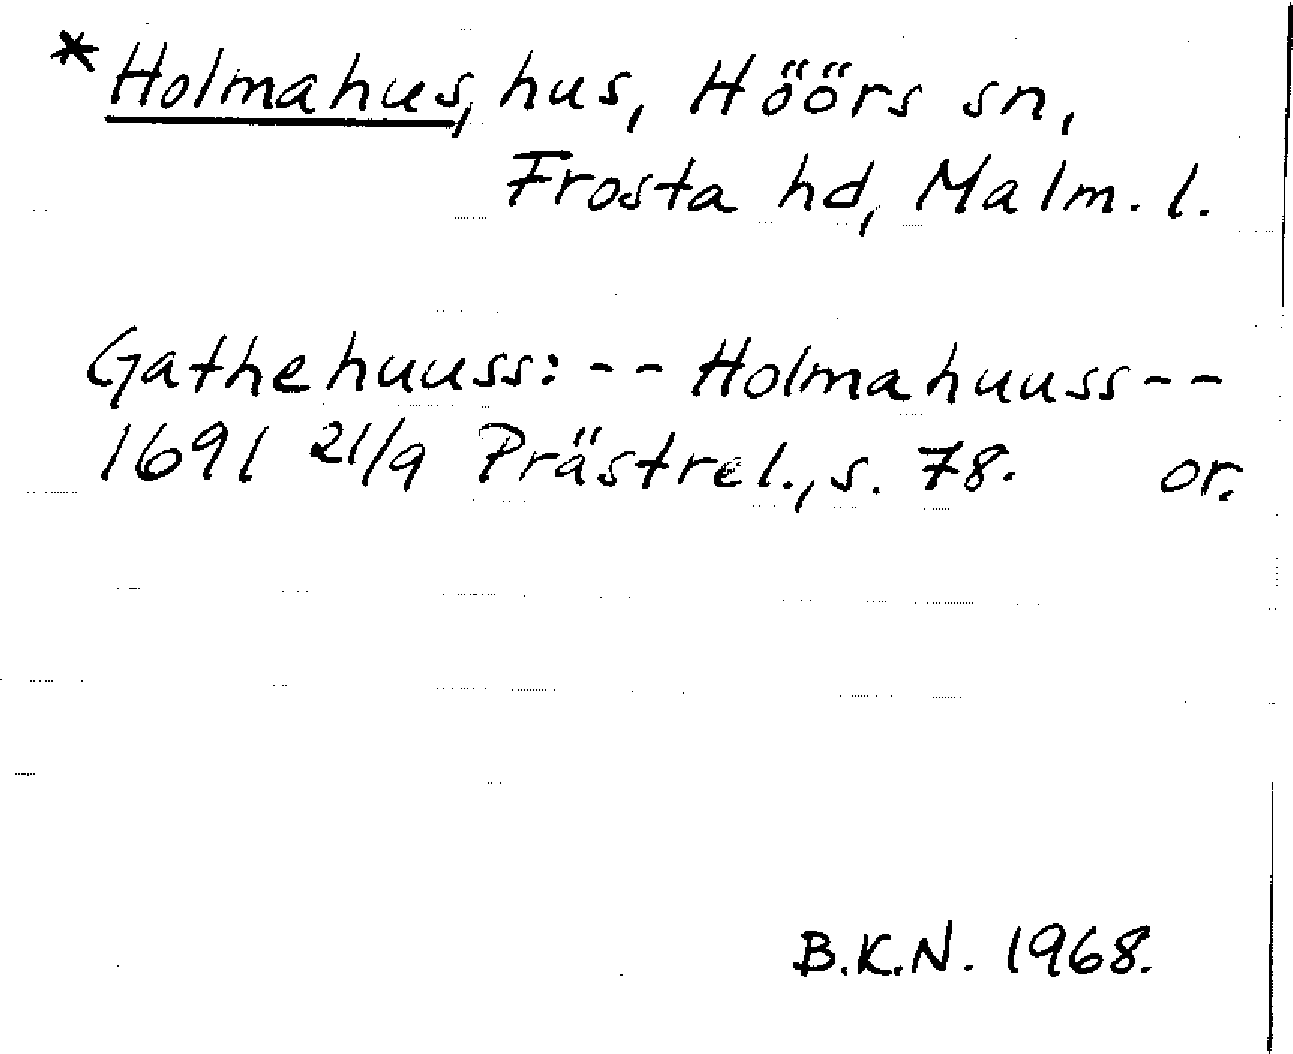 * Holmahus, hus, Höörs sn,
Frosta hd, Malm. l.
Gathehuuss: -- Holmahuuss --
1691 21/9 Prästrel., s. 78. or.
B.K.N. 1968.